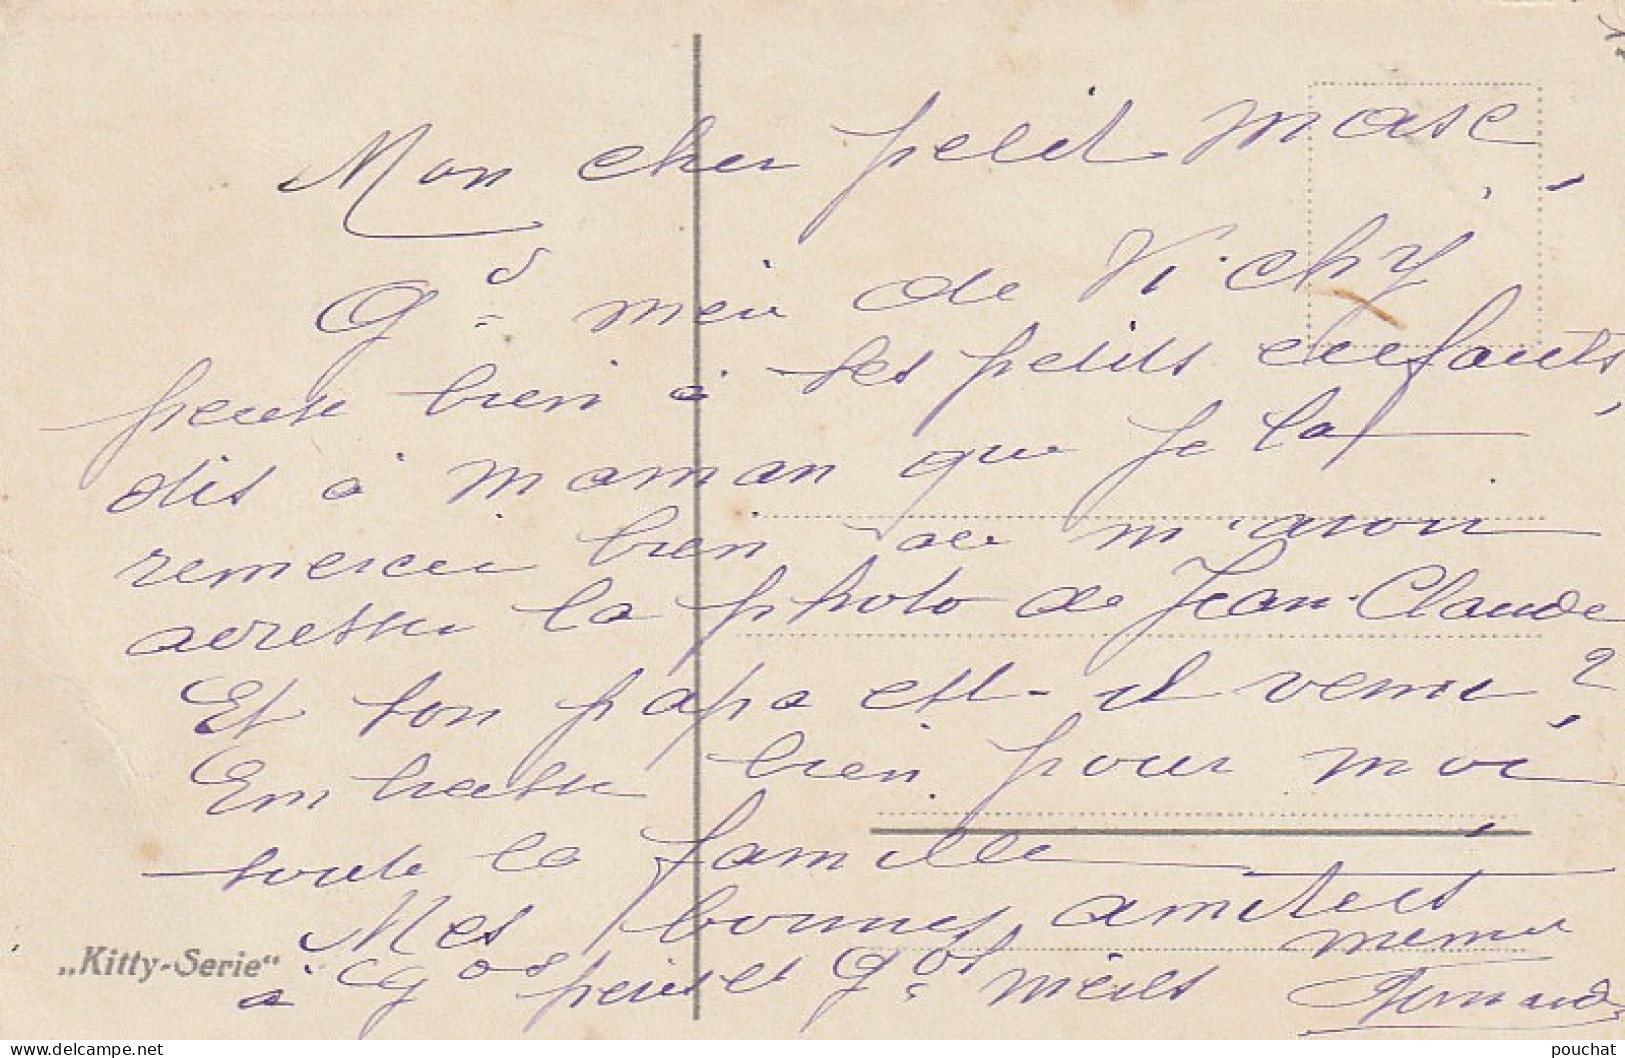 Mon cher petit masé,
Gd mère de Vichy
pense bien à ses petits enfants,
dis à maman que je la
remercie bien de m'avoir
adressé la photo de Jean-Claude
Et ton papa est-il venu?
Embrasse bien pour moi
toute la famille
Mes bonnes amitiés
à Gds pères et Gds mères
mémé
Fernande
„Kitty-Serie“
pouchat